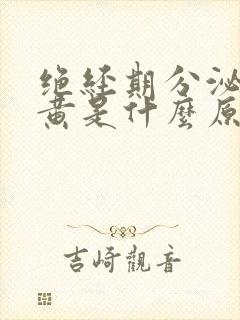 绝经期分泌
黄是什麼原
吉崎觀音